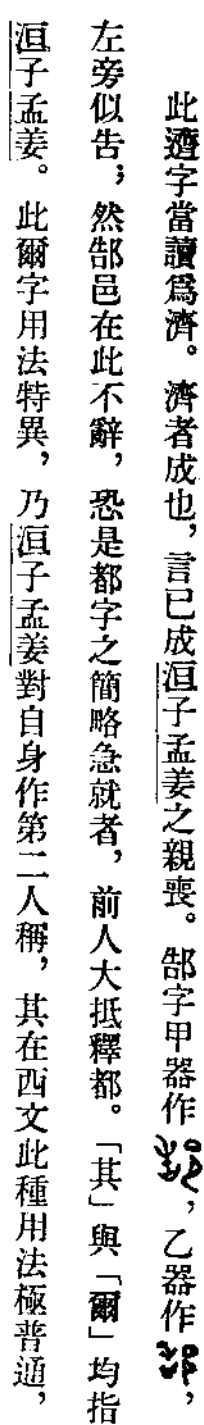 此遭字當讀爲濟。濟者成也，言已成洹子孟姜之親喪。郜字甲器作，乙器作，
左旁似告；然郜邑在此不辭，恐是都字之簡略急就者，前人大抵釋都。「其」與「爾」均指
洹子孟姜。此爾字用法特異，乃洹子孟姜對自身作第二人稱，其在西文此種用法極普通，